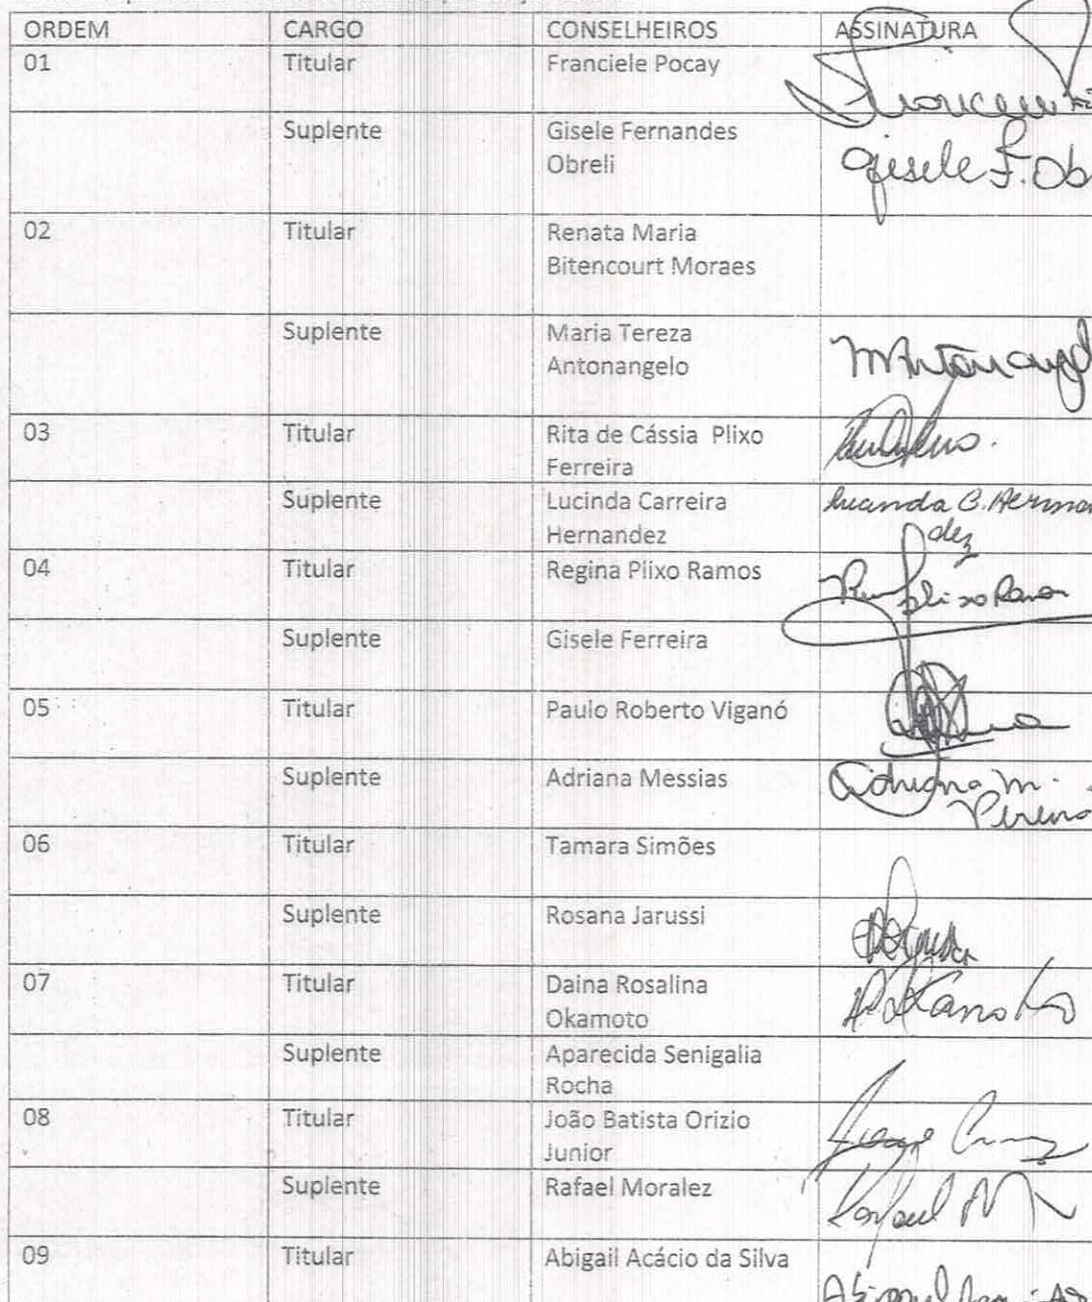 ORDEM CARGO CONSELHEIROS ASSINATURA
01 Titular Franciele Pocay
Suplente Gisele Fernandes
Obreli
Gisele F. Ob
02 Titular Renata Maria
Bitencourt Moraes
Suplente Maria Tereza
Antonangelo
03 Titular Rita de Cássia Plixo
Ferreira
Suplente Lucinda Carreira
Hernandez
dez
04 Titular Regina Plixo Ramos
Plixo Ramos
Suplente Gisele Ferreira
05 Titular Paulo Roberto Viganó
Suplente Adriana Messias
Adriana M.
Pereira
06 Titular Tamara Simões
Suplente Rosana Jarussi
07 Titular Daina Rosalina
Okamoto
Suplente Aparecida Senigalia
Rocha
08 Titular João Batista Orizio
Junior
Suplente Rafael Moralez
Rafael M
09 Titular Abigail Acácio da Silva